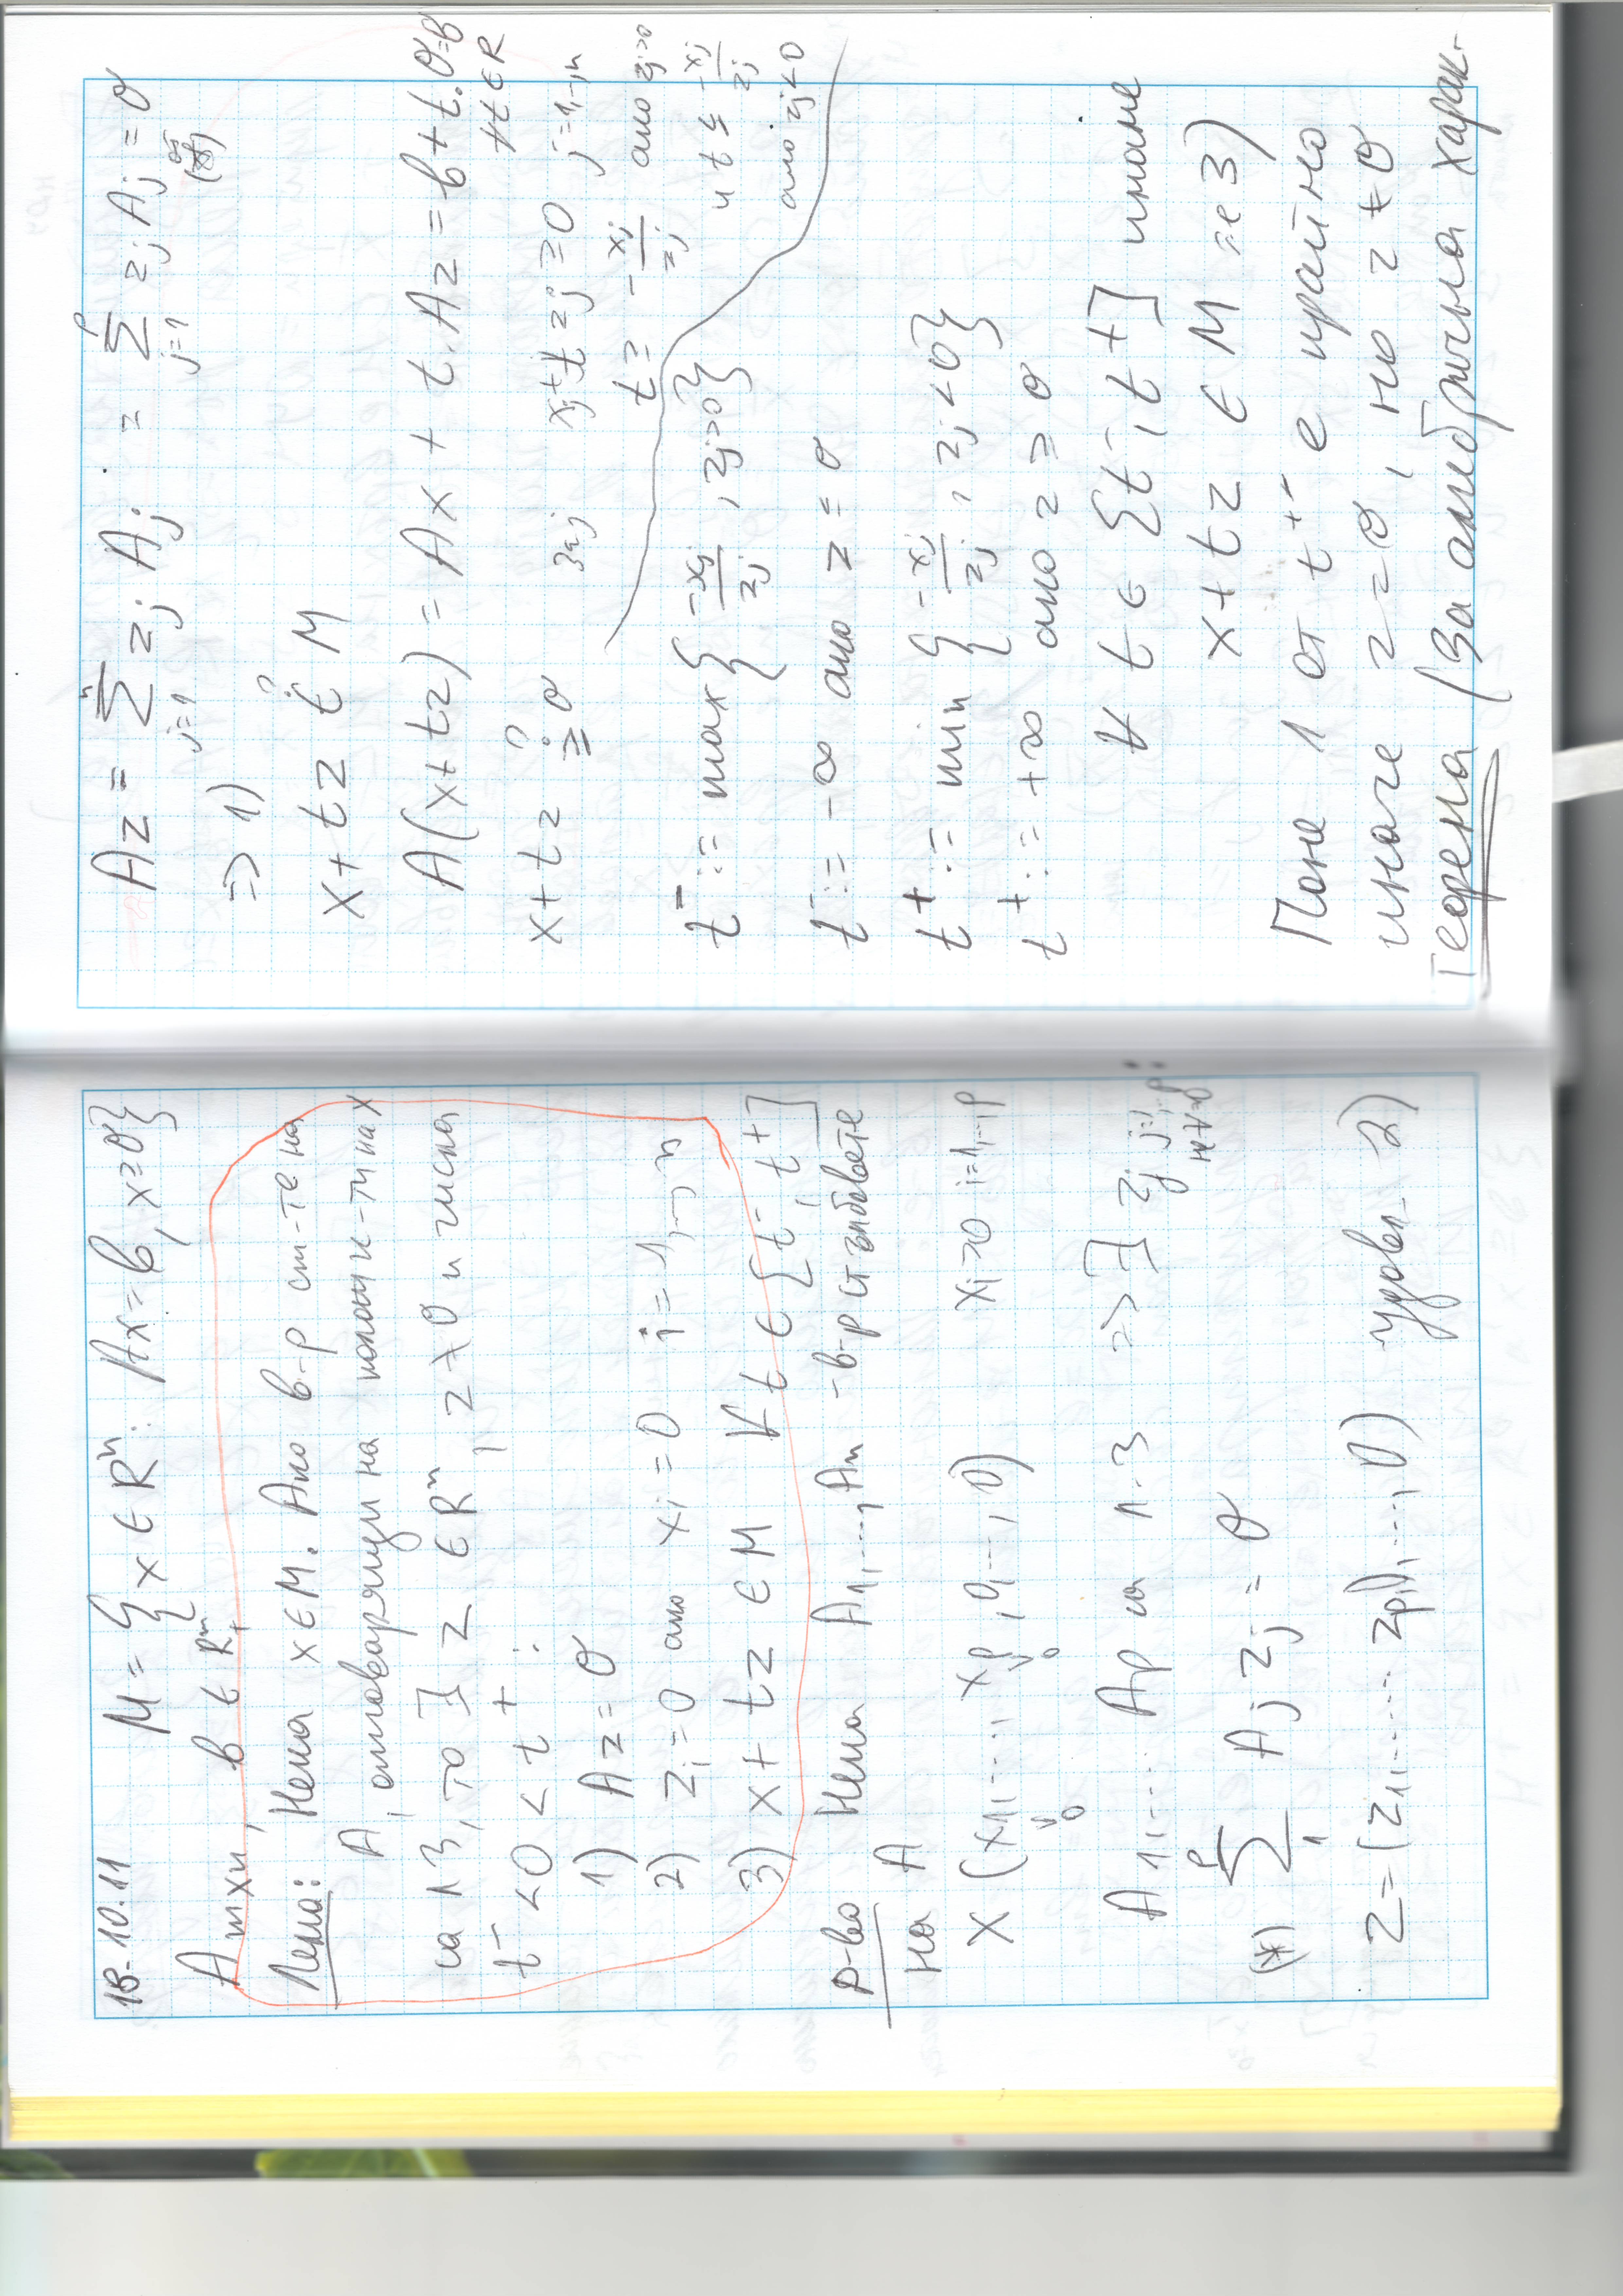 18.10.11 M = { x ∈ Rⁿ: Ax = b, x ≥ 0 }
A m×n, b ∈ Rᵐ
Лема: Нека x ∈ M. Ако в-р ст-те на
A, отговарящи на полож к-ти на x
са ЛЗ, то ∃ z ∈ Rⁿ, z ≠ 0 и числа
t⁻ < 0 < t⁺ :
1) Az = 0
2) zᵢ = 0 ако xᵢ = 0 i = 1, ..., n
3) x + tz ∈ M ∀ t ∈ [t⁻, t⁺]
Д-во Нека A₁, ..., Aₙ - в-р стълбовете
на A
x (x₁, ..., xₚ, 0, ..., 0) xᵢ > 0 i = 1, ..., p
A₁, ... Aₚ са л.з => ∃ zⱼ j=1,...,p
(*) Σ₁ᵖ Aⱼ zⱼ = 0
z = (z₁, ..... zₚ, 0, ..., 0) удовл. 2)
Az = Σⱼ₌₁ⁿ zⱼ Aⱼ = Σⱼ₌₁ᵖ zⱼ Aⱼ = 0
от (*)
=> 1)
x + tz ∈ M
A(x + tz) = Ax + t.Az = b + t.0 = b
∀ t ∈ R
x + tz ≥ 0 за j xⱼ + t zⱼ ≥ 0 j = 1,..,n
t ≥ - xⱼ/zⱼ ако zⱼ > 0
и t ≤ -xⱼ/zⱼ
ако zⱼ < 0
t⁻ := max { -xⱼ/zⱼ, zⱼ > 0 }
t⁻ := -∞ ако z = 0
t⁺ := min { -xⱼ/zⱼ, zⱼ < 0 }
t⁺ := +∞ ако z ≥ 0
∀ t ∈ [t⁻, t⁺] имаме
x + tz ∈ M (е 3)
Поне 1 от t⁺⁻ е крайно
иначе z = 0, но z ≠ 0
Теорема (За алгебрична харак-